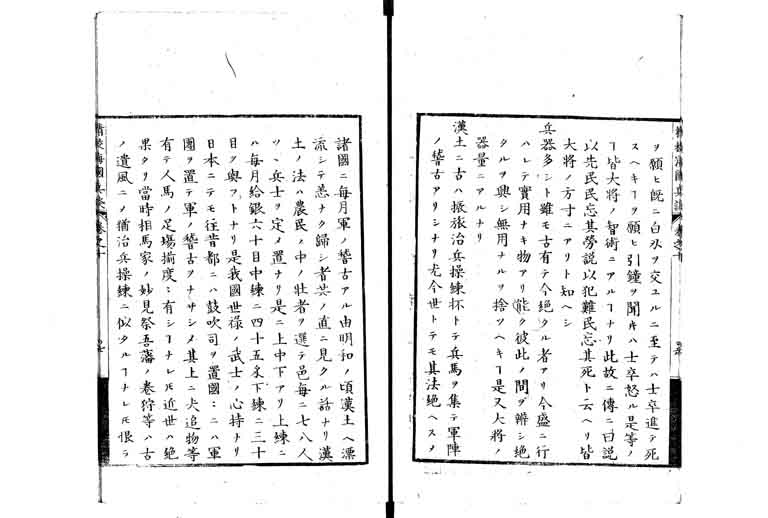 ヲ願ヒ既ニ白刃ヲ交ユルニ至テハ士卒進テ死
スヘキヿヲ願ヒ引鐘ヲ聞キハ士卒怒ル是等ノ
ヿ皆大将ノ智術ニアルヿナリ此故ニ傳ニ曰説
以先民民忘其勞説以犯難民忘其死ト云ヘリ皆
大将ノ方寸ニアリト知ヘシ
兵器多シト雖モ古有テ今絶タル者アリ今盛ニ行
ハレテ實用ナキ物アリ能ク彼此ノ間ヲ辨シ絶
タルヲ興シ無用ナルヲ捨ツヘキヿ是又大将ノ
器量ニアルナリ
漢土ニ古ハ振旅治兵操練抔トテ兵馬ヲ集テ軍陣
ノ稽古アリシナリ尤今世トテモ其法絶ヘスノ
諸國ニ毎月軍ノ稽古アル由明和ノ頃漢土ヘ漂
流シテ恙ナク歸シ者共ノ直ニ見タル話ナリ漢
土ノ法ハ農民ノ中ノ壮者ヲ選テ邑毎ニ七八人
ツヽ兵士ヲ定メ置ナリ是ニ上中下アリ上練ニ
ハ毎月給銀六十目中練ニ四十五匁下練ニ三十
目ヲ與フトナリ是我國世禄ノ武士ノ心持ナリ
日本ニテモ往昔都ニハ鼓吹司ヲ置國〻ニハ軍
團ヲ置テ軍ノ稽古ヲナサシメ其上ニ犬追物等
有テ人馬ノ足場揃度〻有シヿナレ𪜈近世ハ絶
果タリ當時相馬家ノ妙見祭吾藩ノ巻狩等ハ古
ノ遺風ニノ猶治兵操練ニ似タルヿナレ𪜈恨ラ